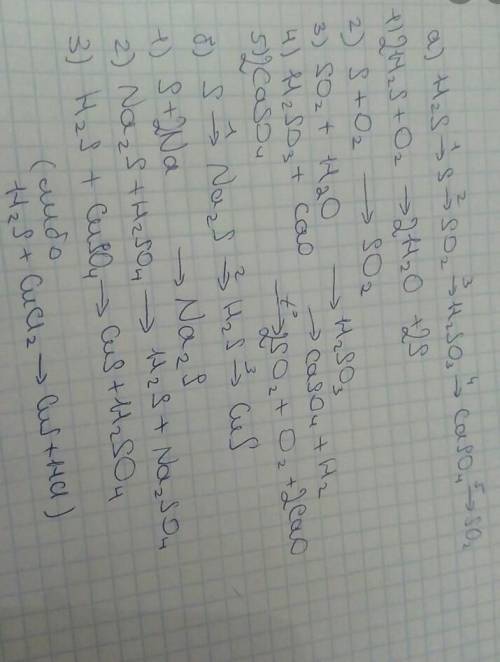 а) H₂S →¹ S →² SO₂ →³ H₂SO₃ →⁴ CaSO₄ →⁵ SO₂
1) 2H₂S + O₂ → 2H₂O + 2S
2) S + O₂ → SO₂
3) SO₂ + H₂O → H₂SO₃
4) H₂SO₃ + CaO → CaSO₄ + H₂
5) 2CaSO₄ →t° 2SO₂ + O₂ + 2CaO
б) S →¹ Na₂S →² H₂S →³ CuS
1) S + 2Na → Na₂S
2) Na₂S + H₂SO₄ → H₂S + Na₂SO₄
3) H₂S + CuSO₄ → CuS + H₂SO₄
(либо
H₂S + CuCl₂ → CuS + HCl)